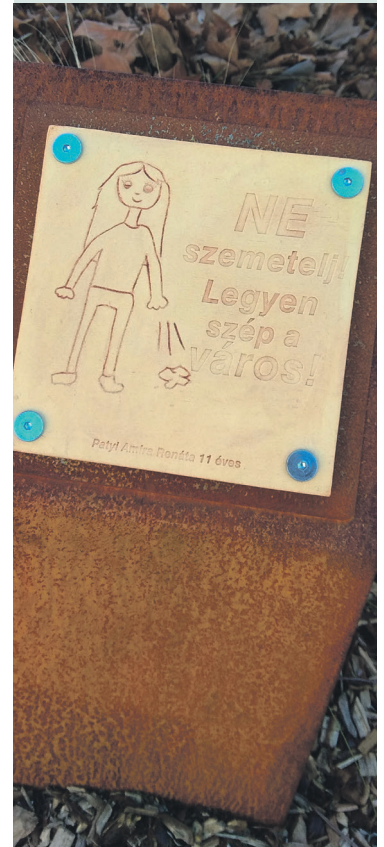 NE
szemetelj!
Legyen
szép a
város!
Patyi Amira Renáta 11 éves